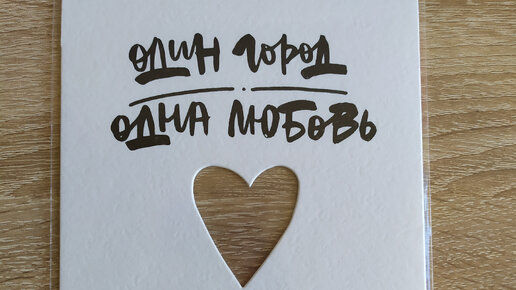 один город
одна любовь